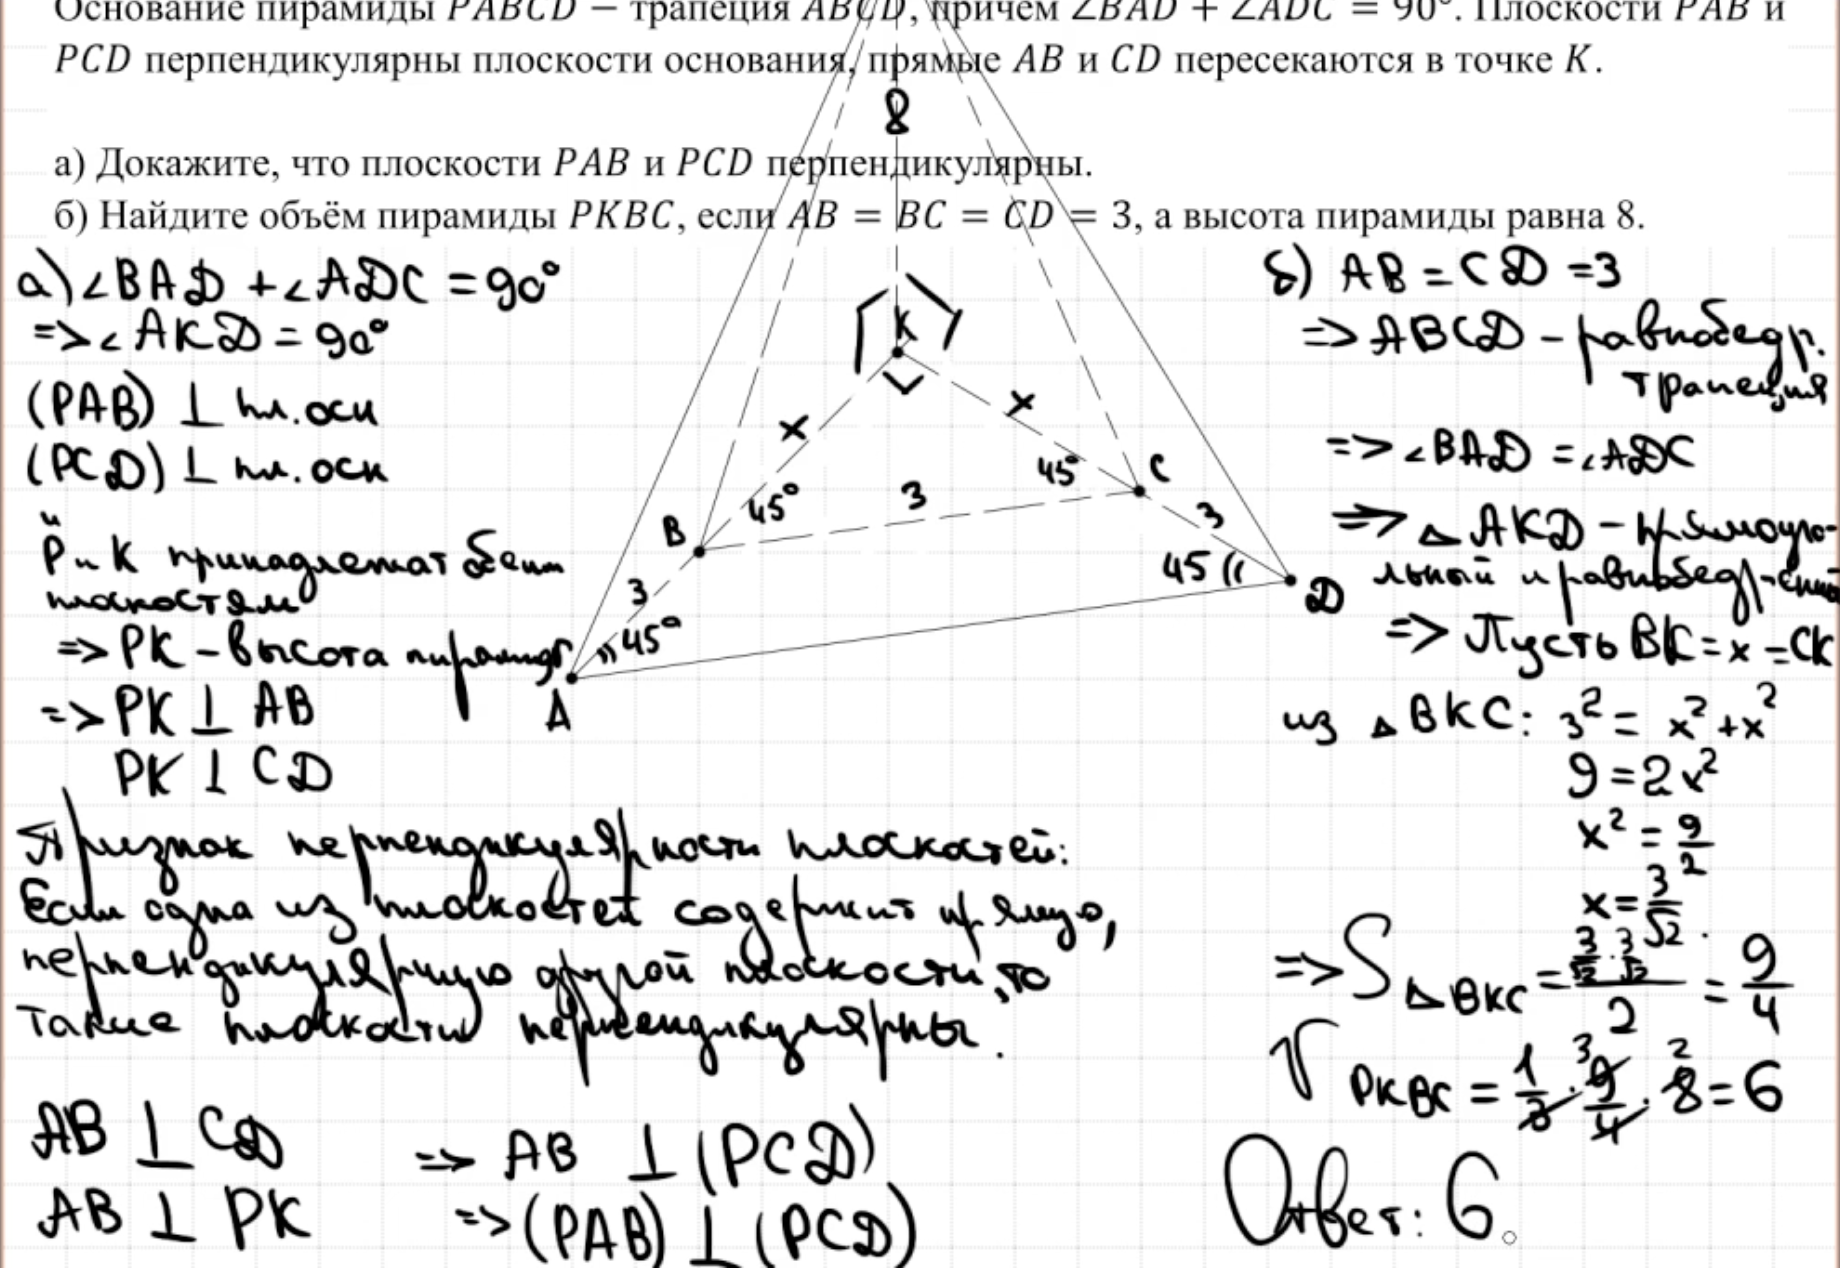 Основание пирамиды PABCD – трапеция ABCD, причём ∠BAD + ∠ADC = 90°. Плоскости PAB и
PCD перпендикулярны плоскости основания, прямые AB и CD пересекаются в точке K.
а) Докажите, что плоскости PAB и PCD перпендикулярны.
б) Найдите объём пирамиды PKBC, если AB = BC = CD = 3, а высота пирамиды равна 8.
а) ∠BAD + ∠ADC = 90°
=> ∠AKD = 90°
(PAB) ⊥ пл. осн
(PCD) ⊥ пл. осн
и
P и K принадлежат обеим
плоскостям
=> PK – высота пирамиды
=> PK ⊥ AB
PK ⊥ CD
Признак перпендикулярности плоскостей:
Если одна из плоскостей содержит прямую,
перпендикулярную другой плоскости, то
такие плоскости перпендикулярны.
AB ⊥ CD => AB ⊥ (PCD)
AB ⊥ PK => (PAB) ⊥ (PCD)
8
K
x
x
45°
3
45°
C
B
3
3
45°
45
D
A
б) AB = CD = 3
=> ABCD – равнобедр.
трапеция
=> ∠BAD = ∠ADC
=> △AKD – прямоуго-
льный и равнобедр-енный
=> Пусть BK = x = CK
из △BKC: 3² = x² + x²
9 = 2x²
x² = 9/2
x = 3/√2.
=> S△BKC = 3/√2 · 3/√2 / 2 = 9/4
V PKBC = 1/3 · 9/4 · 8 = 6
3 2
Ответ: 6.